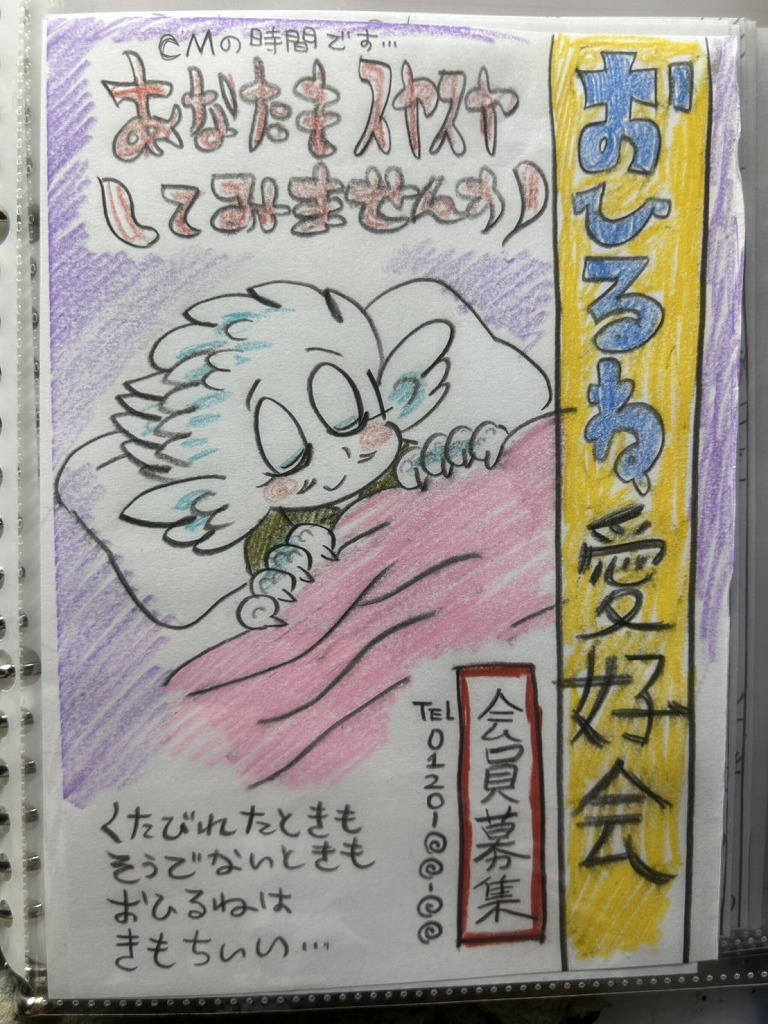 CMの時間です…
あなたも スヤスヤ
してみませんか
おひるね愛好会
会員募集
TEL 0120-@@-@@
くたびれたときも
そうでないときも
おひるねは
きもちいい…